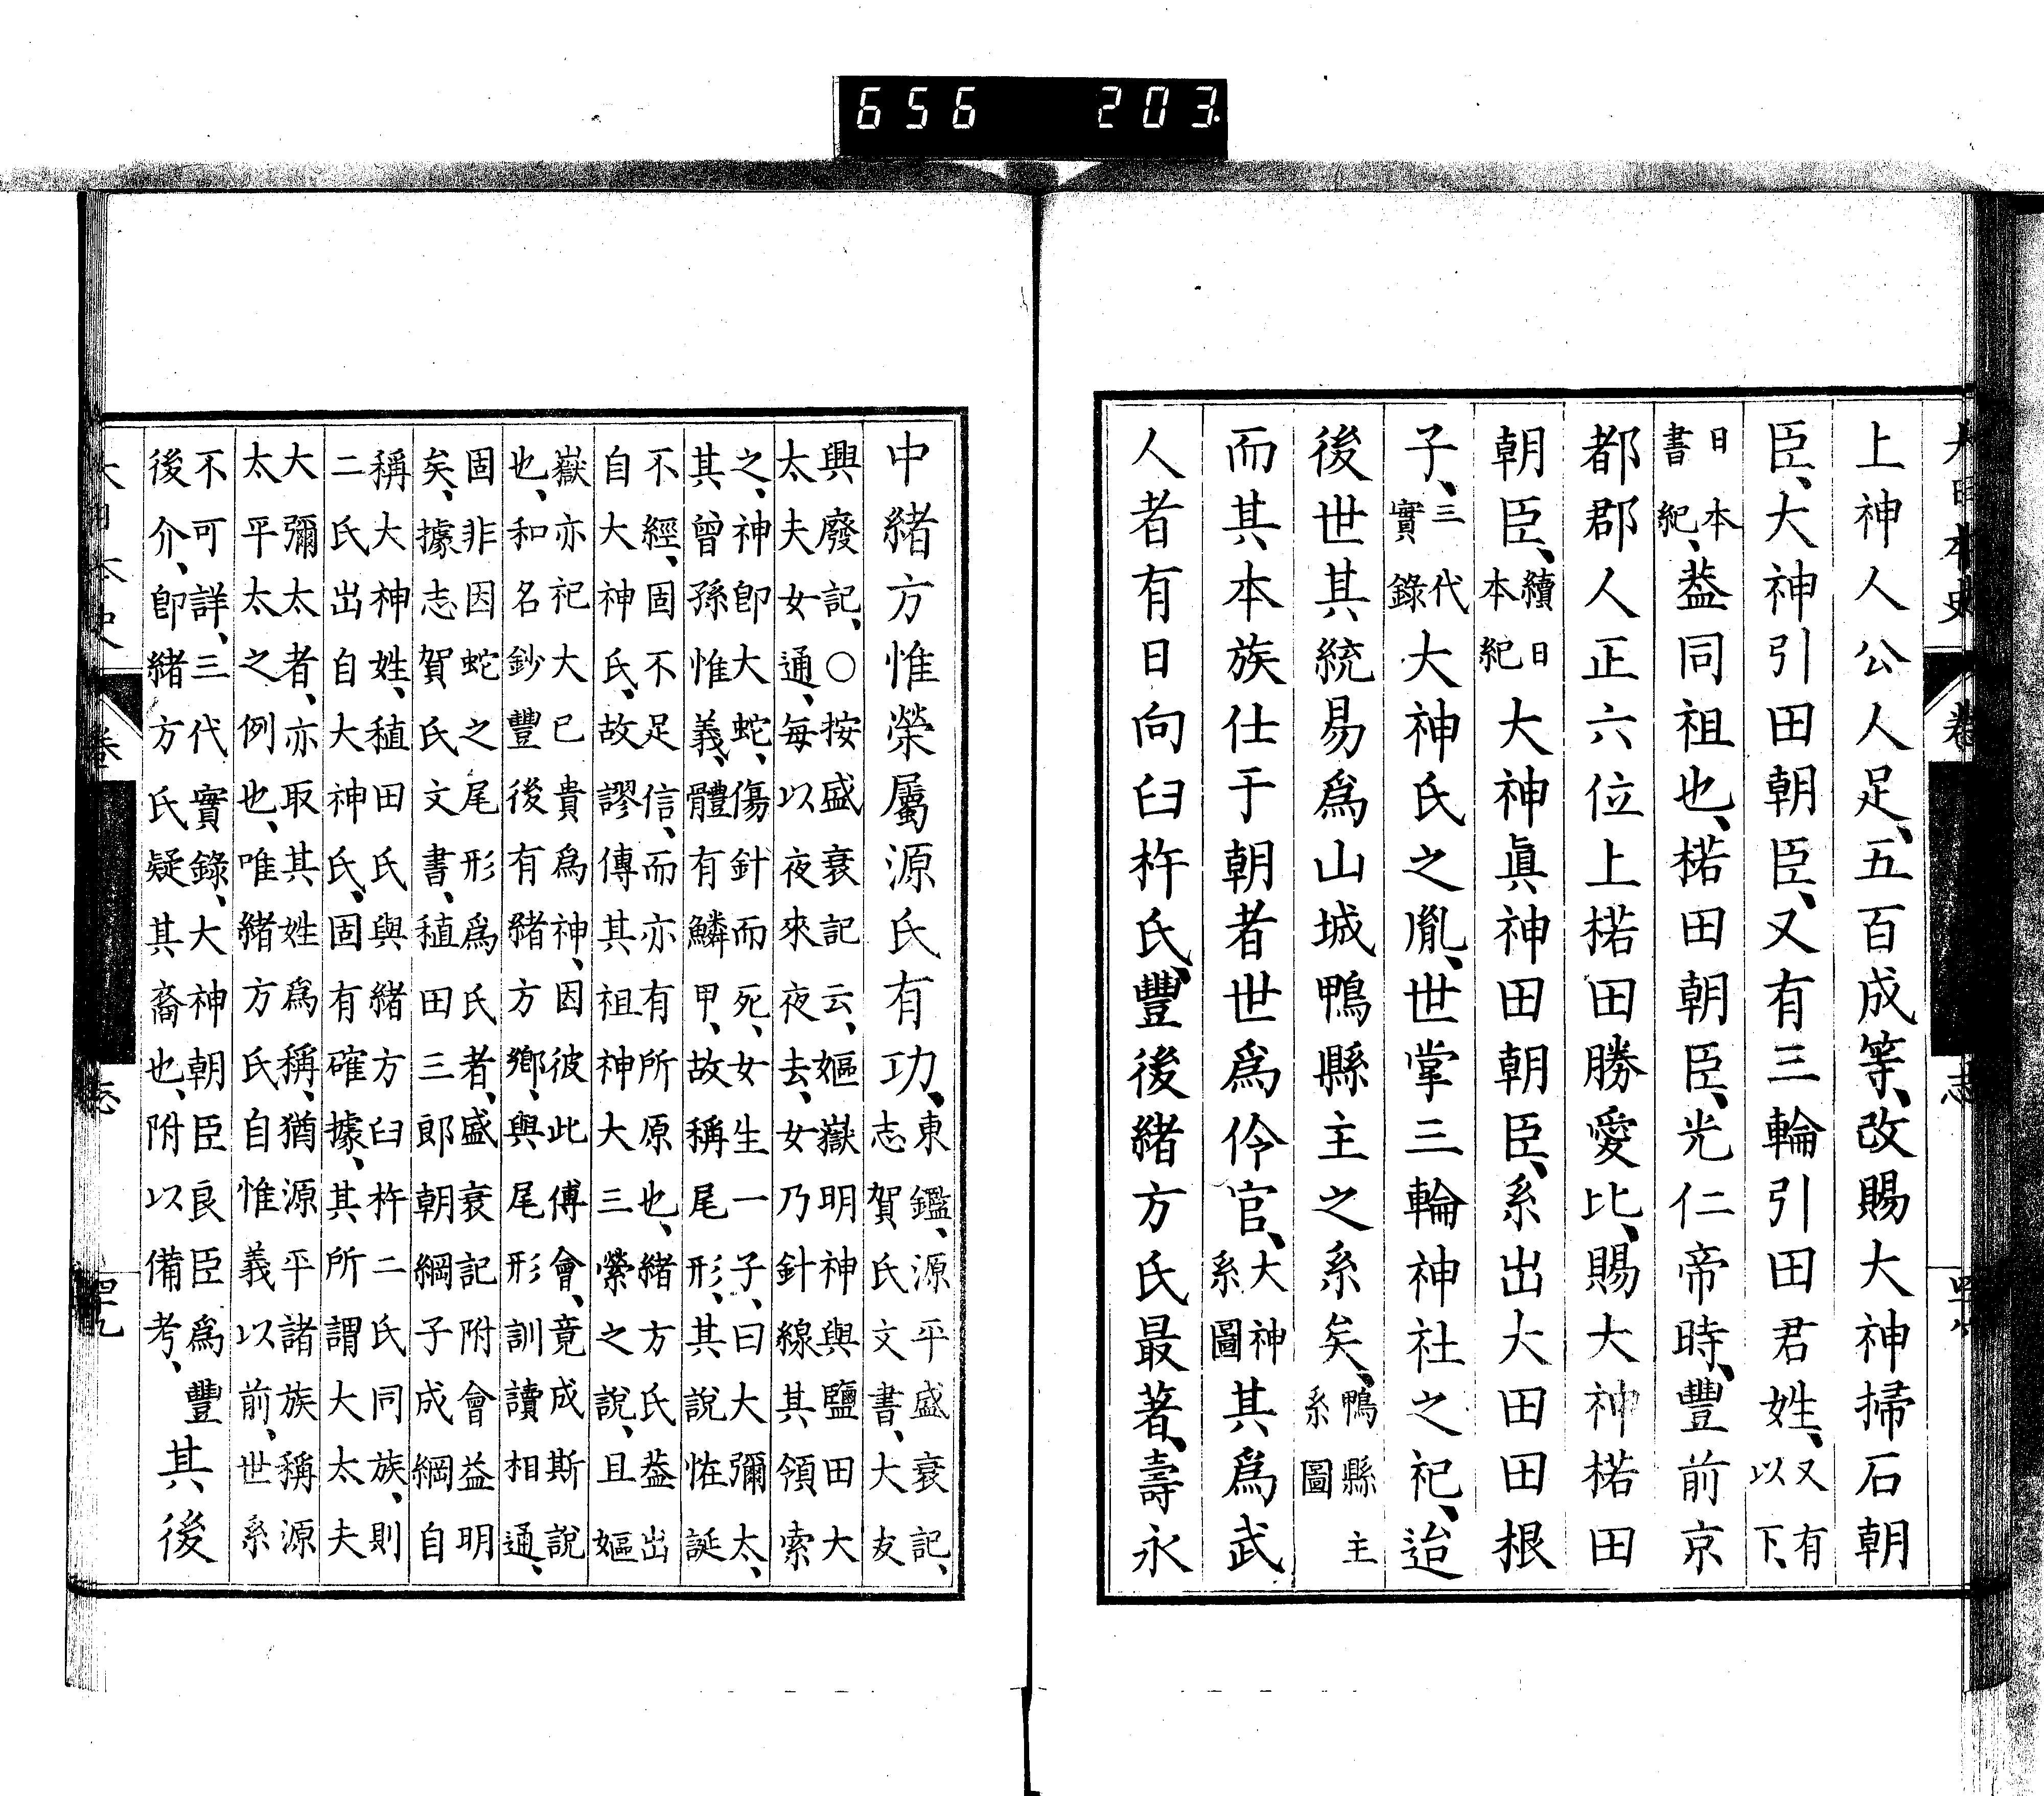 大日本史 卷 志
上神人公人足、五百成等、改賜大神掃石朝
臣、大神引田朝臣、又有三輪引田君姓、又有以下、
日本書紀、蓋同祖也、楉田朝臣、光仁帝時、豐前京
都郡人正六位上楉田勝愛比、賜大神楉田
朝臣、續日本紀大神眞神田朝臣、系出大田田根
子、三代實錄大神氏之胤、世掌三輪神社之祀、迨
後世其統易爲山城鴨縣主之系矣、鴨縣主系圖
而其本族仕于朝者世爲伶官、大神系圖其爲武
人者有日向臼杵氏、豐後緒方氏最著、壽永
中緒方惟榮屬源氏有功、東鑑、源平盛衰記、
志賀氏文書、大友
興廢記、○按盛衰記云、嫗嶽明神與鹽田大
太夫女通、每以夜來夜去、女乃針線其領、索
之、神卽大蛇、傷針而死、女生一子、曰大彌太、
其曾孫惟義、體有鱗甲、故稱尾形、其說恠誕
不經、固不足信、而亦有所原也、緒方氏蓋出
自大神氏、故謬傳其祖神大三縈之說、且嫗
嶽亦祀大已貴爲神、因彼此傅會、竟成斯說
也、和名鈔豐後有緒方鄉、與尾形訓讀相通、
固非因蛇之尾形爲氏者、盛衰記附會益明
矣、據志賀氏文書、稙田三郎朝綱子成綱自
稱大神姓、稙田氏與緒方臼杵二氏同族、則
二氏出自大神氏、固有確據、其所謂大太夫
大彌太者、亦取其姓爲稱、猶源平諸族稱源
太平太之例也、唯緒方氏自惟義以前、世系
不可詳、三代實錄、大神朝臣良臣爲豐
後介、卽緒方氏疑其裔也、附以備考、其後
大日本史 卷 志 四十九
656 203